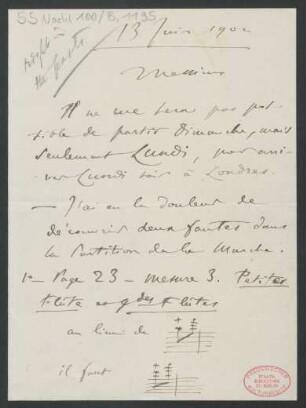 55 Nachl 100/B, 1195
13 Juin 1902
Messieurs
Il ne me sera pas pos
sible de partir Dimanche, mais
seulement Lundi, pour arri
ver Lundi soir à Londres.
— J'ai eu la douleur de
découvrir deux fautes dans
la Partition de la Marche.
1º — Page 23 — mesure 3. Petites
Flûte et gdes Flûtes
au lieu de
il faut